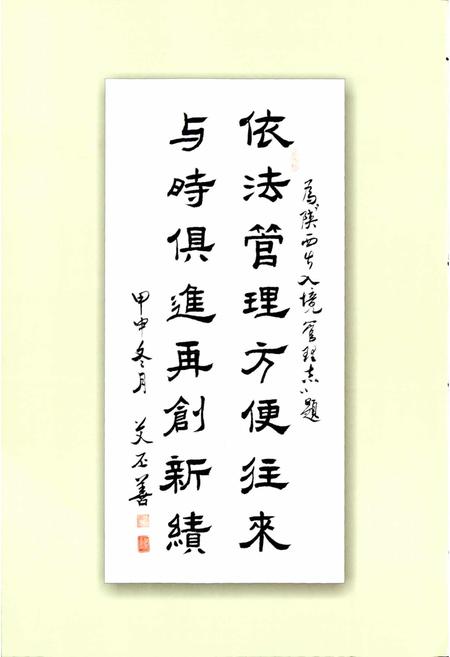 为陕西出入境管理志题
依法管理方便往來
与時俱進再創新績
甲申冬月 艾丕善